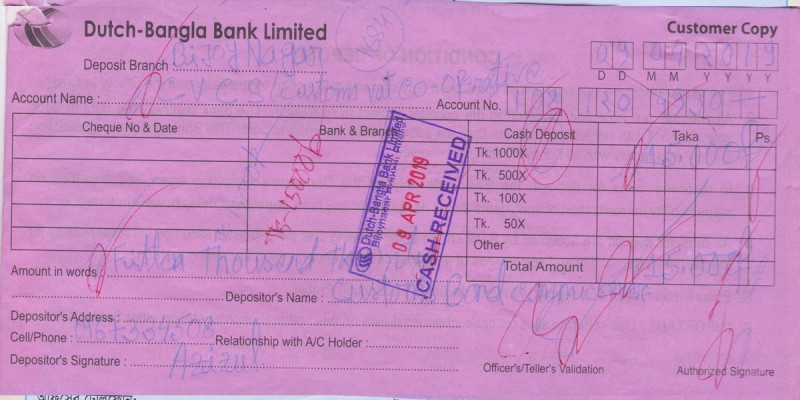 Dutch-Bangla Bank Limited
Customer Copy
Deposit Branch : Bijoy Nagar
09 04 2019
D D M M Y Y Y Y
Account Name : CVCS (Customs vat co-operative
Account No. 120
Cheque No & Date
Bank & Branch
Cash Deposit
Taka
Ps
Tk. 1000X
15.000/
Tk. 500X
Tk. 100X
Tk. 50X
Other
Total Amount
15.000/
Tk-15000/
Dutch-Bangla Bank Limited
09 APR 2019
CASH RECEIVED
Amount in words : thousand
Depositor's Name : Customs Bond
Depositor's Address :
Cell/Phone :
Relationship with A/C Holder :
Depositor's Signature : Azizul
Officer's/Teller's Validation
Authorized Signature